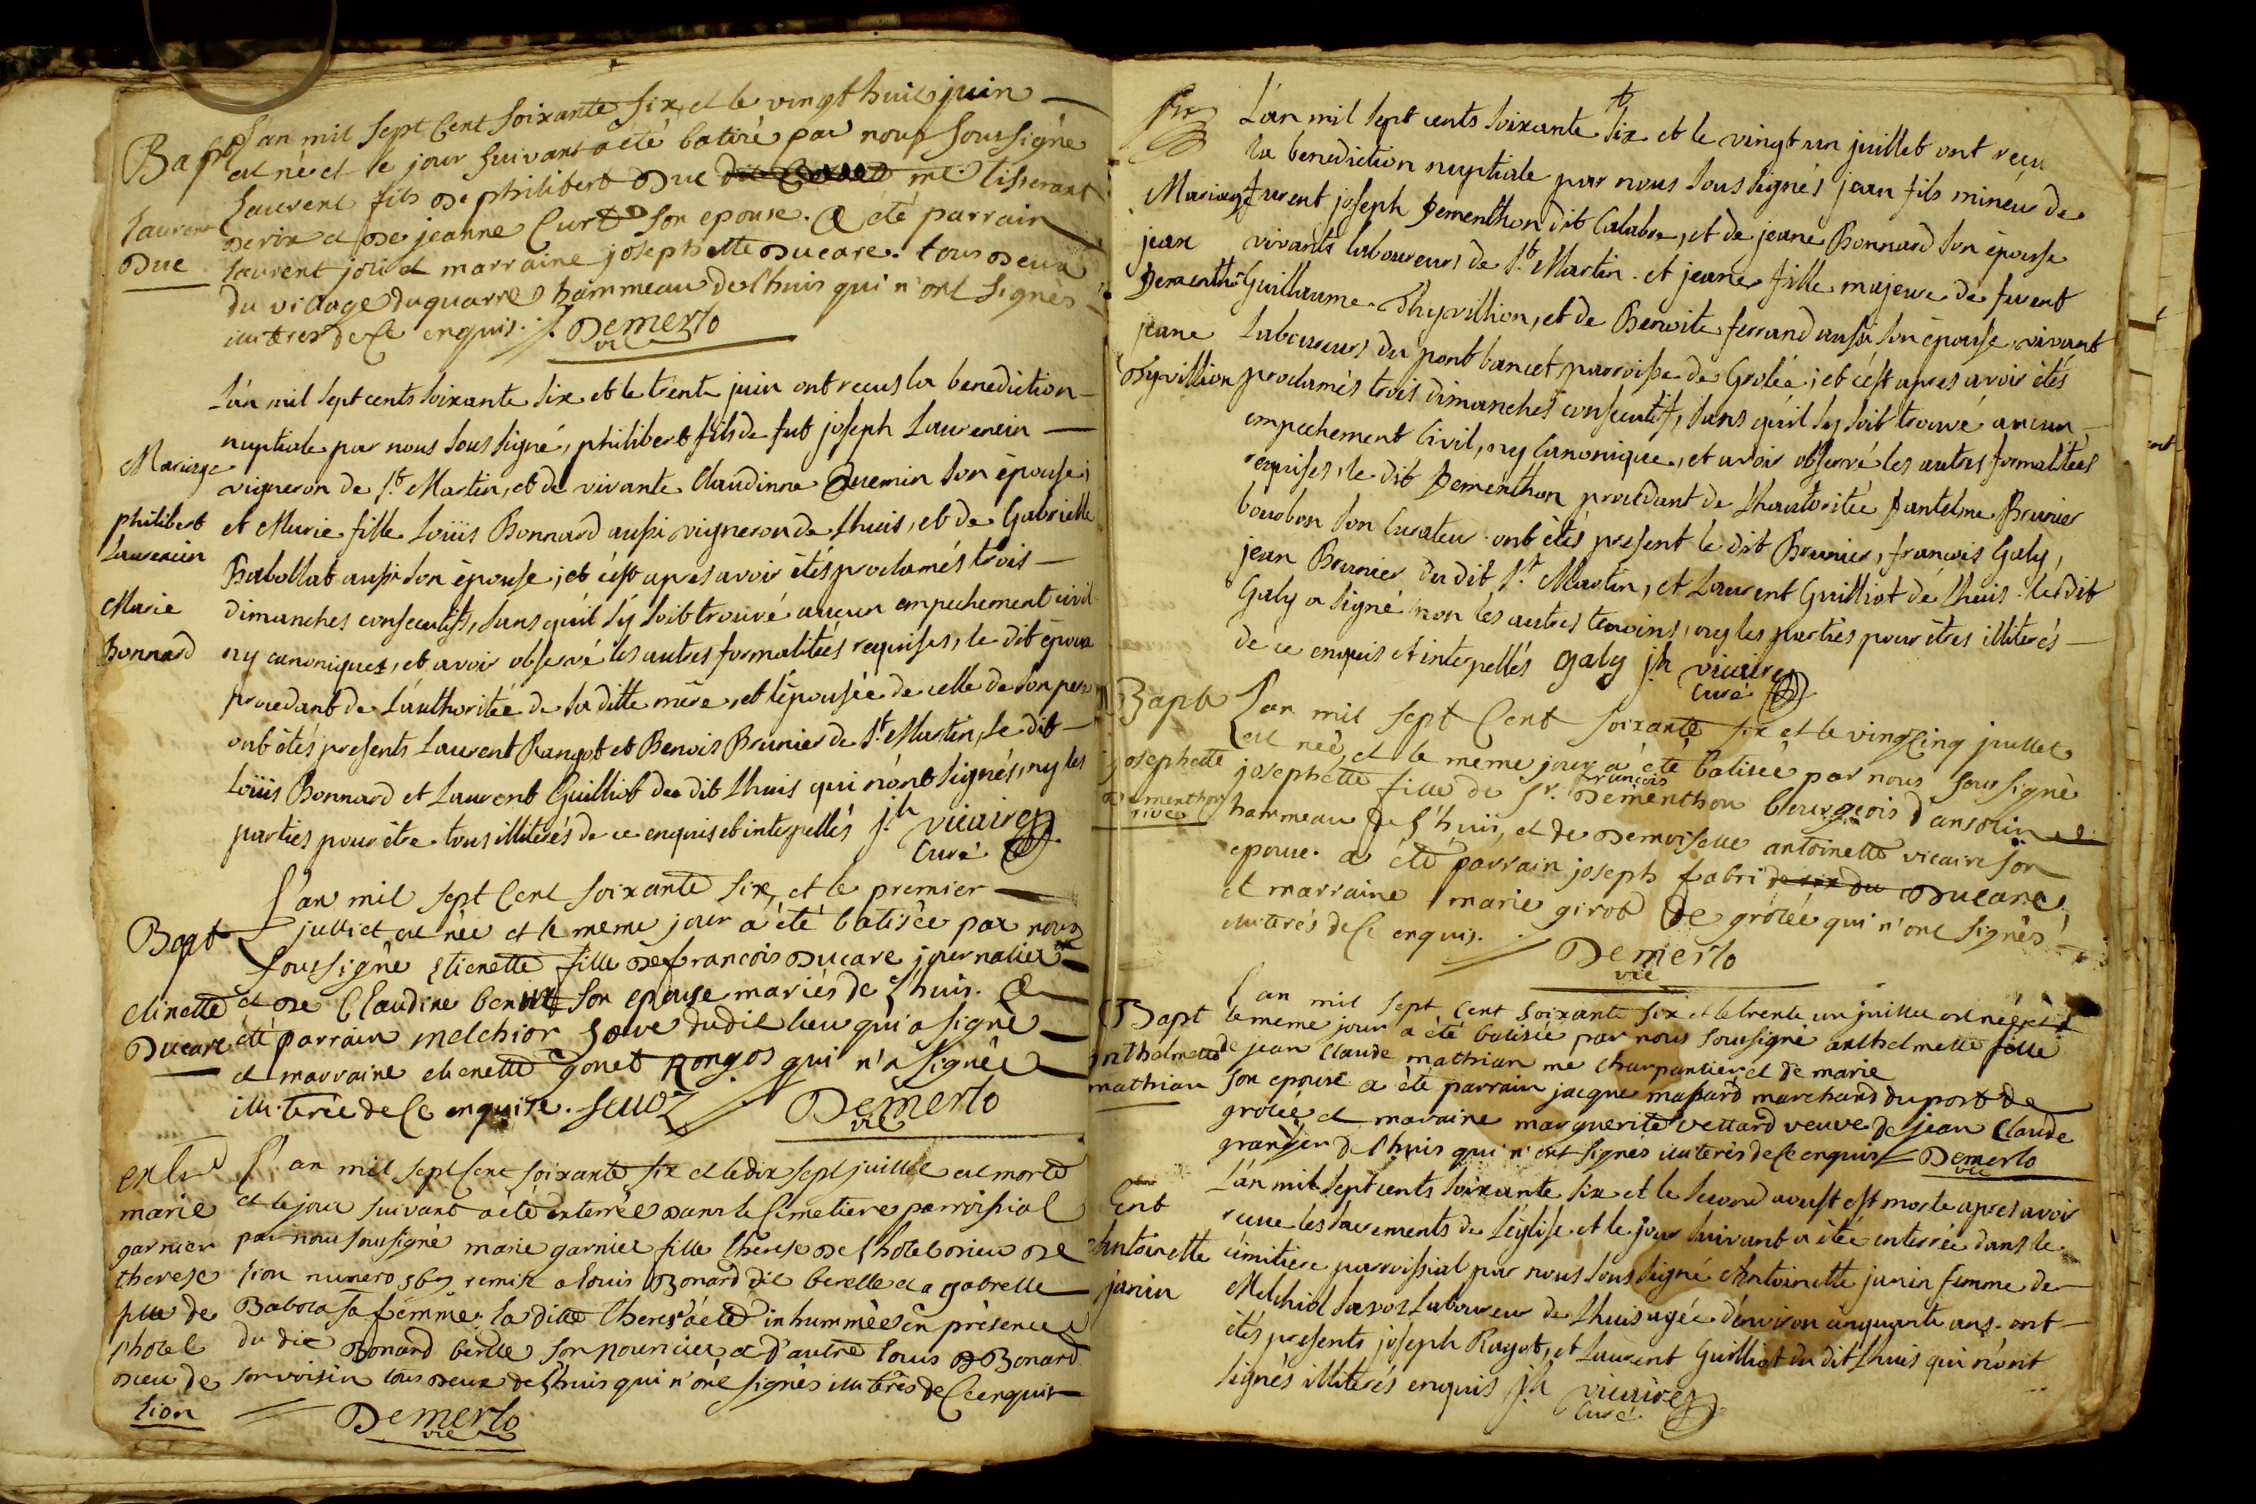 Bapt L'an mil sept Cent soixante six, et le vingt huit juin
est né et le jour suivant a été batisé par nous soussigné
Laurent fils de philibert Duc dit me tisserant
laurent de rix et de jeanne Curt son epouse. a eté parrain
Duc laurent joli et marraine josephette Ducare. tous deux
du village du quarre hammeau de Lhuis qui n'ont signés
illiteres de Ce enquis. Demerlo
vic
L'an mil sept cents soixante six et le trente juin ont recus la benediction
nuptiale par nous sous signé, philibert fils de fut joseph Laurencin
Mariage
vigneron de St. Martin, et de vivante Claudinne Quemin son épouse;
philibert et Marie fille Loüis Bonnard aussi vigneron de Lhuis, et de Gabrielle
Laurencin Babollat aussi son épouse; et c'est apres avoir étés proclamés trois
Marie dimanches consecutifs, sans qu'il s'y soit trouvé aucun empechement civil
Bonnard ny canoniques, et avoir observé les autres formalitées requises, le dit époux
procedant de L'authoritée de sa ditte mère, et l'épousée de celle de son pere
ont étés presents Laurent Rangot et Benois Brunier de St. Martin, Le dit
Loüis Bonnard et Laurent Guilliot du dit Lhuis qui n'ont signés, ny les
parties pour être tous illiterés de ce enquis et interpellés jh vicaire
Curé
L'an mil sept Cent soixante six, et le premier
Bapt juillet est née et le meme jour a été batisée par nous
soussigné Etienette fille de francois Ducare journalier
etinette et de Claudine son epouse mariés de Lhuis. a
Ducare été parrain melchior dudit lieu qui a signé
et marraine etienette gonet qui n'a signée
illiterée de Ce enquise. Demerlo
vic
L'an mil sept Cent soixante six et le dix sept juillet est morte
marie et le jour suivant a été enterrée dans le Cimetiere parroissial
garnier par nous soussigné marie garnier fille therese de l'hotel dieu de
therese lion numero remise a louis Bonard dit berelle et a gabrelle
fille de Babola sa femme; la ditte therese a été inhummée en présence
l'hotel du dit Bonard berelle son nouricier et d'autre louis Bonard
dieu de son voisin tous deux de Lhuis qui n'ont signés illiterés de Ce enquis
lion Demerlo
vic
L'an mil sept cents soixante six et le vingt un juillet ont reçu
la benediction nuptiale par nous sous signés jean fils mineur de
Mariage furent joseph Dementhon dit Calabre, et de jeane Bonnard son épouse
jean vivants laboureurs de St. Martin. et jeane fille majeure de furent
Dementhon Guillaume Dhyvillion, et de Benoite ferrand aussi son épouse, vivant
jeane Laboureurs du pont bancet, parroisse de Grolée; et c'est apres avoir étés
Dyvillion proclamés trois dimanches consecutifs, sans qu'il s'y soit trouvé aucun
empechement civil, ny canonique, et avoir observé les autres formalitées
requises, le dit Dementhon procedant de Lhautoritée Dantelme Brunier
bourbon son Curateur. ont étés present le dit Brunier, françois Galy,
jean Brunier du dit St. Martin, et Laurent Guilliot de Lhuis. le dit
Galy a signé non les autres temoins, ny les parties pour êtres illiterés
de ce enquis et interpellés galy jh vicaire
Curé
Bapte L'an mil sept Cent soixante six et le vingt Cinq juillet
est née, et le meme jour a été batisée par nous soussigné
josephette josephette fille de Sr. francois Dementhon bourgeois d'ansolin
dementhon rive hammeau de Lhuis, et de Demoiselle antoinette vicaire son
epouse. a été parrain joseph fabri Ducare,
et marraine marie girod de grôlée qui n'ont signés
illiterés de Ce enquis. Demerlo
vic
L'an mil sept Cent soixante six et le trente un juillet est née et
Bapt le meme jour a été batisée par nous soussigné anthelmette fille
anthelmette de jean Claude mathian me charpantier et de marie
mathian son epouse a été parrain jacque massard marchand du port de
grolée et marraine marguerite vettard veuve de jean Claude
grangier de Lhuis qui n'ont signés illiterés de Ce enquis Demerlo
vic
L'an mil sept cents soixante six et le second aoust est morte apres avoir
Ent recue les Sacrements de L'église. et le jour suivant a étée enterrée dans le
Antoinette cimitiere parroissial par nous sous signé Antoinette janin femme de
janin Melchiol laboureur de Lhuis agée d'environ cinquante ans. ont
étés presents joseph Ragot, et Laurent Guilliot du dit Lhuis qui n'ont
signés illiterés enquis jh vicaire
Curé